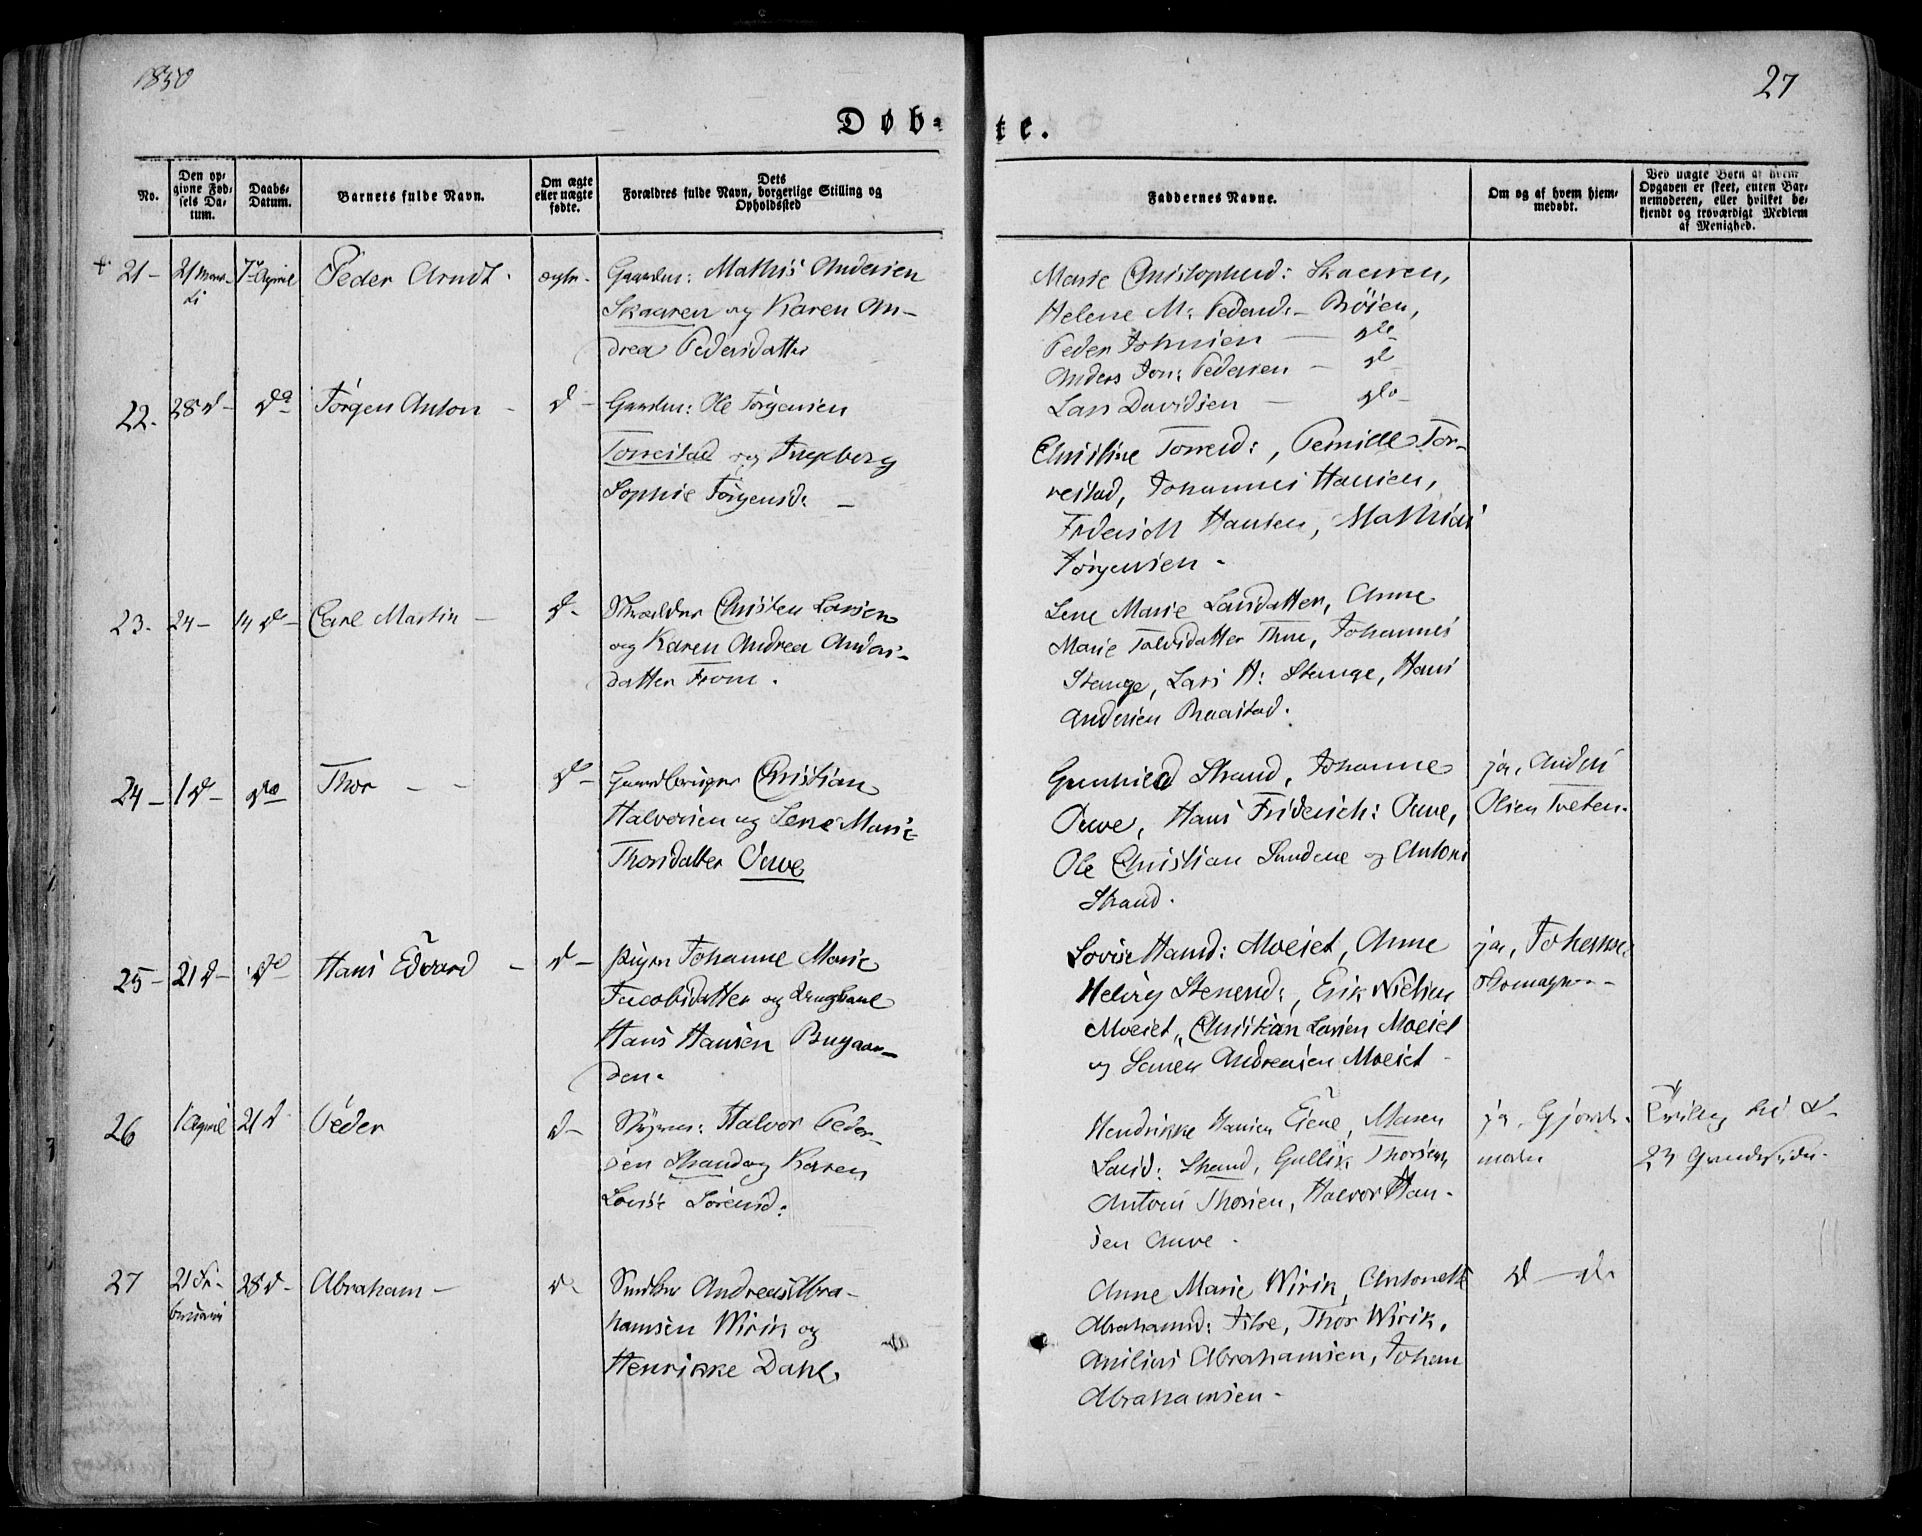 1850
27
Døb-
te.
No.
Den op-
givne Fød-
sels Da-
tum.
Daabs-
Datum.
Barnets fulde Navn.
Om ægte
eller uægte
fødte.
Dets
Forældres fulde Navn, borgerlige Stilling og
Opholdssted
Faddernes Navne.
Om og af hvem hjem-
medøbt.
Ved uægte Børn af hvem
Opgaven er skeet, enten Bar-
nemoderen, eller hvilket be-
kjendt og troværdigt Medlem
af Menighed.
21-
7de April
Peder Arndt.
ægte-
Gaardm: Mathis Andersen
Skaaren og Karen An-
drea Pedersdatter
Marie Christophersd: Skaaren,
Helene M: Pedersd:- Bröien,
Peder Johnsen
Anders Jon: Pedersen
Lars Davidsen
22.
28 d-
do
Jörgen Anton -
d-
Gaardm: Ole Jörgensen
Torrestad og Ingeborg
Sophie Jörgensd: -
Christine Torresd:, Pernille Tor-
restad, Johannes Hansen,
Friderich Hansen, Mathias
Jörgensen -
23.
24-
14 do-
Carl Martin -
d-
Skrædder Christen Larsen
og Karen Andrea Anders-
datter From.
Lene Marie Larsdatter, Anne
Marie Tolvsdatter Thue, Johannes
Stange, Lars H: Stange, Hans
Andersen Braastad.
24-
1 d-
do
Thor - -
d-
Gaardbruger Christian
Halvorsen og Lene Marie
Thorsdatter Auve
Gunhild Strand, Johanne
Auve, Hans Friderich: Auve,
Ole Christian Sundene og Antoni
Strand.
ja, Anders
Olsen Tveten.
25-
21 d-
do
Hans Edvard -
d-
pigen Johanne Marie
Jacobsdatter og Ungkarl
Hans Hansen Brygaar-
den.
Lovise Hansd: Moeiet, Anne
Helvig Stenersd:, Erik Nielsen
Moeiet, Christian Larsen Moeiet
og Andreasen Moeiet -
ja, Johanne
Thomasen -
26
1 April
21 d
Peder
d-
Halvor Peder-
sen Strand og Karen
Louise Sörensd:
Hendrikke Hansen Eiene, Maren
Larsd: Strand, Gullik Thorsen,
Antoni Thorsen, Halvor Han-
sen Auve -
ja, Gjord-
moder
Tvilling til
27
21 Fe-
bruari
28 d-
Abraham -
d-
Snedker Andreas Abra-
hamsen Wirik og
Henrikke Dahl.
Anne Marie Wirik, Antonette
Abrahamsd: Thor Wirik,
Anilius Abrahamsen, Johan
Abrahamsen -
d - do